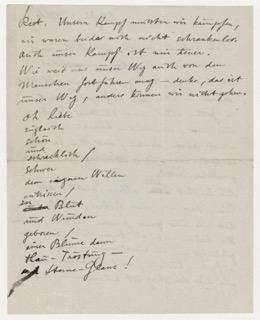 keit. Unseren Kampf mussten wir kämpfen,
wir waren beide noch nicht schrankenlos.
Auch unser Kampf ist mir teuer.
Wie weit uns unser Weg auch von den
Menschen fortführen mag – denke, das ist
unser Weg, anders können wir nicht gehen.
Oh liebe
zugleich
schön
und
schrecklich /
Schwer
dem eigenen Willen
entrissen /
Blut
und Wunden
geboren /
einer Blume dann
Stern-Glanz!